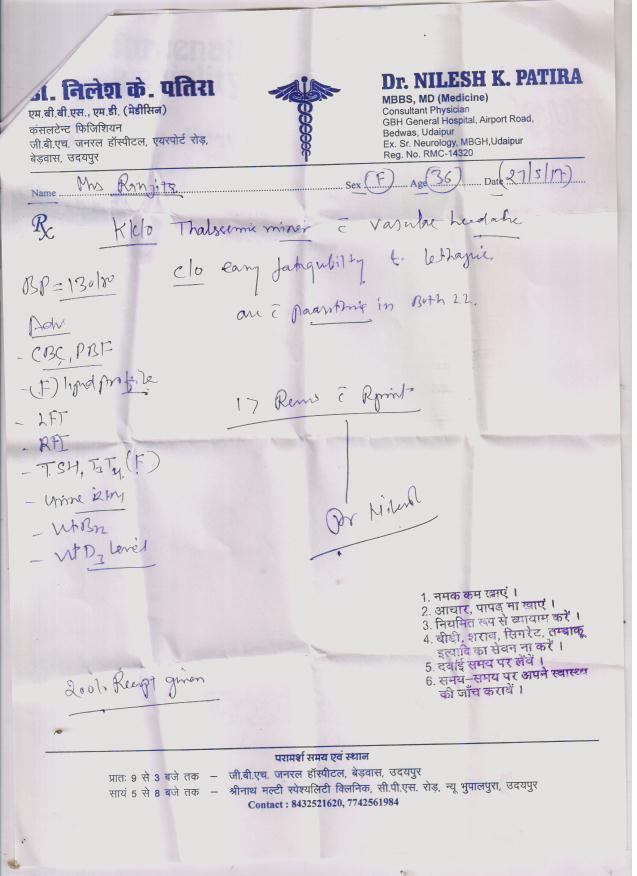 डॉ. निलेश के. पतिरा
एम.बी.बी.एस., एम.डी. (मेडीसिन)
कंसलटेन्ट फिजिशियन
जी.बी.एच. जनरल हॉस्पीटल, एयरपोर्ट रोड़,
बेड़वास, उदयपुर
Dr. NILESH K. PATIRA
MBBS, MD (Medicine)
Consultant Physician
GBH General Hospital, Airport Road,
Bedwas, Udaipur
Ex. Sr. Neurology, MBGH, Udaipur
Reg. No. RMC-14320
Name Mrs Ranjita Sex (F) Age (36) Date (27/5/17)
Rx K/c/o Thalssemic minor c̄ vascular headache
BP = 130/80 c/o easy fatigubility
c̄ in Both
Adv
- CBC, PBF
- (F) lipid profile
- LFT
- RFT
- TSH, T3 T4 (F)
- Urine
- Vit B12
- Vit D3 level
1> c̄
Dr Nilesh
200/- Receipt given
1. नमक कम खाएं ।
2. आचार, पापड़ ना खाएं ।
3. नियमित रूप से व्यायाम करें ।
4. बीडी, शराब, सिगरेट, तम्बाकू
इत्यादि का सेवन ना करें ।
5. दवाई समय पर लेवें ।
6. समय-समय पर अपने स्वास्थ्य
की जाँच करावें ।
परामर्श समय एवं स्थान
प्रातः 9 से 3 बजे तक – जी.बी.एच. जनरल हॉस्पीटल, बेड़वास, उदयपुर
सायं 5 से 8 बजे तक – श्रीनाथ मल्टी स्पेश्यलिटी क्लिनिक, सी.पी.एस. रोड़, न्यू भुपालपुरा, उदयपुर
Contact : 8432521620, 7742561984